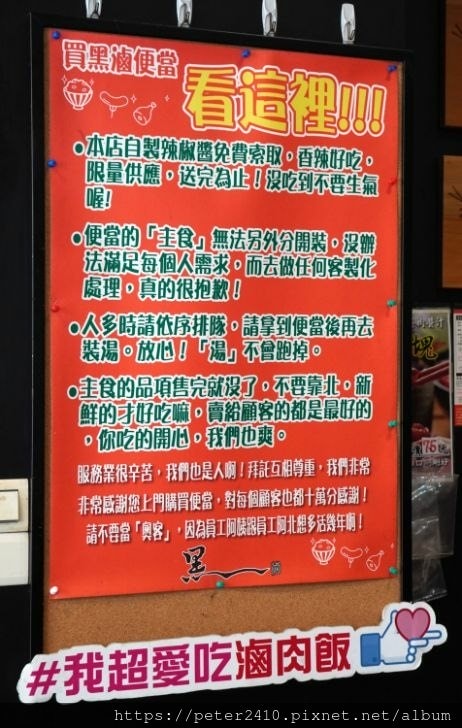 買黑滷便當
看這裡!!!
•本店自製辣椒醬免費索取，香辣好吃，
限量供應，送完為止！沒吃到不要生氣
喔!
•便當的「主食」無法另外分開裝，沒辦
法滿足每個人需求，而去做任何客製化
處理，真的很抱歉！
•人多時請依序排隊，請拿到便當後再去
裝湯。放心！「湯」不會跑掉。
•主食的品項售完就沒了，不要靠北，新
鮮的才好吃嘛，賣給顧客的都是最好的
，你吃的開心，我們也爽。
服務業很辛苦，我們也是人啊！拜託互相尊重，我們非常
非常感謝您上門購買便當，對每個顧客也都十萬分感謝！
請不要當「奧客」，因為員工阿姨跟員工阿北想多活幾年啊！
黑
#我超愛吃滷肉飯
https://peter2410.pixnet.net/album